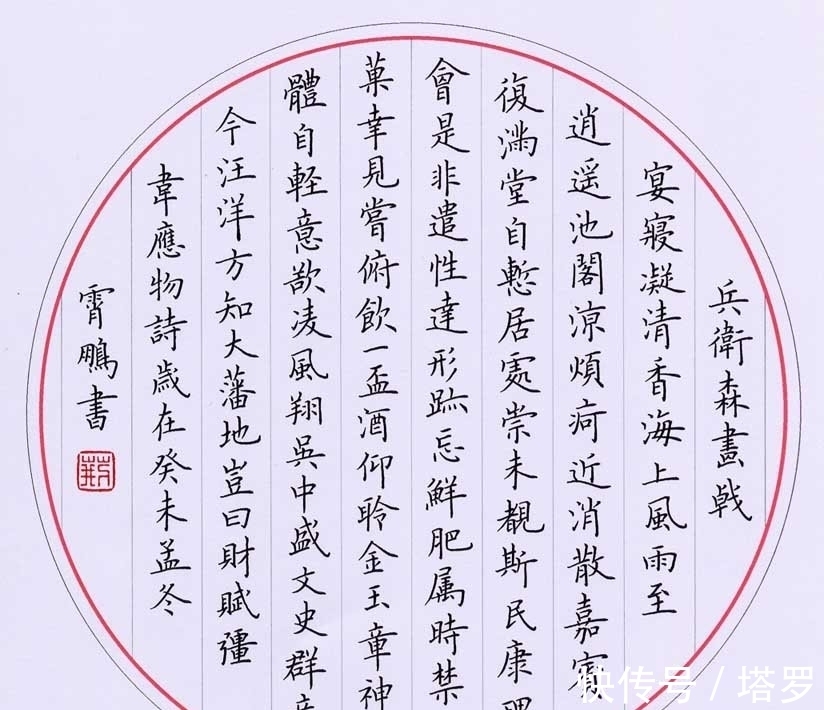 兵衛森畫戟
宴寢凝清香海上風雨至
逍遥池閣涼煩疴近消散嘉賓
復滿堂自慙居處崇未覩斯民康
會是非遣性達形跡忘鮮肥属時禁
菓幸見嘗俯飲一盃酒仰聆金玉章神
體自軽意欲凌風翔吳中盛文史群
今汪洋方知大藩地豈曰財賦彊
韋應物詩歲在癸未孟冬
霄鵬書
快传号 / 塔罗